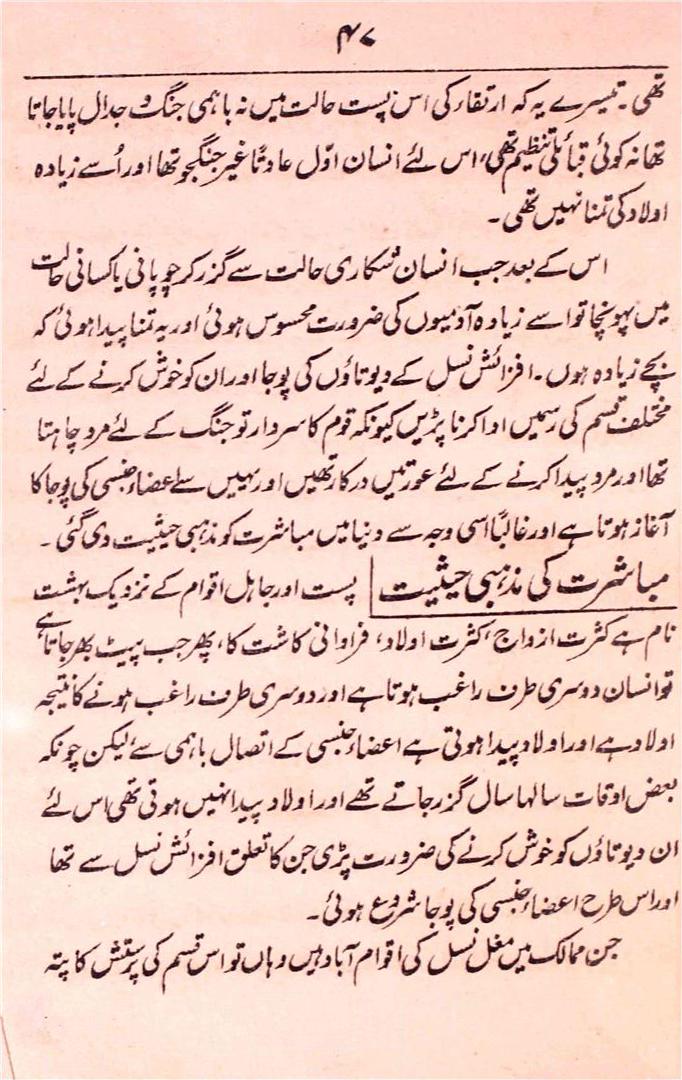 ۴۷
تھی۔ تیسرے یہ کہ ارتقاء کی اس پست حالت میں نہ باہمی جنگ و جدال پایا جاتا
تھا نہ کوئی قبائلی تنظیم تھی، اس لئے انسان اوّل عادتًا غیر جنگجو تھا اور اُسے زیادہ
اولاد کی تمنا نہیں تھی۔
اس کے بعد جب انسان شکاری حالت سے گزر کر چوپانی یا کسانی حالت
میں پہونچا تو اسے زیادہ آدمیوں کی ضرورت محسوس ہوئی اور یہ تمنا پیدا ہوئی کہ
بچے زیادہ ہوں۔ افزائش نسل کے دیوتاؤں کی پوجا اور ان کو خوش کرنے کے لئے
مختلف قسم کی رسمیں ادا کرنا پڑیں کیونکہ قوم کا سردار تو جنگ کے لئے مرد چاہتا
تھا اور مرد پیدا کرنے کے لئے عورتیں درکار تھیں اور یہیں سے اعضاء جنسی کی پوجا کا
آغاز ہوتا ہے اور غالبًا اسی وجہ سے دنیا میں مباشرت کو مذہبی حیثیت دی گئی۔
مباشرت کی مذہبی حیثیت پست اور جاہل اقوام کے نزدیک بہشت
نام ہے کثرت ازواج، کثرت اولاد، فراوانی کاشت کا، پھر جب پیٹ بھر جاتا ہے
تو انسان دوسری طرف راغب ہوتا ہے اور دوسری طرف راغب ہونے کا نتیجہ
اولاد ہے اور اولاد پیدا ہوتی ہے اعضاء جنسی کے اتصال باہمی سے لیکن چونکہ
بعض اوقات سالہا سال گزر جاتے تھے اور اولاد پیدا نہیں ہوتی تھی اس لئے
ان دیوتاؤں کو خوش کرنے کی ضرورت پڑی جن کا تعلق افزائش نسل سے تھا
اور اس طرح اعضاء جنسی کی پوجا شروع ہوئی۔
جن ممالک میں مغل نسل کی اقوام آباد ہیں وہاں تو اس قسم کی پرستش کا پتہ